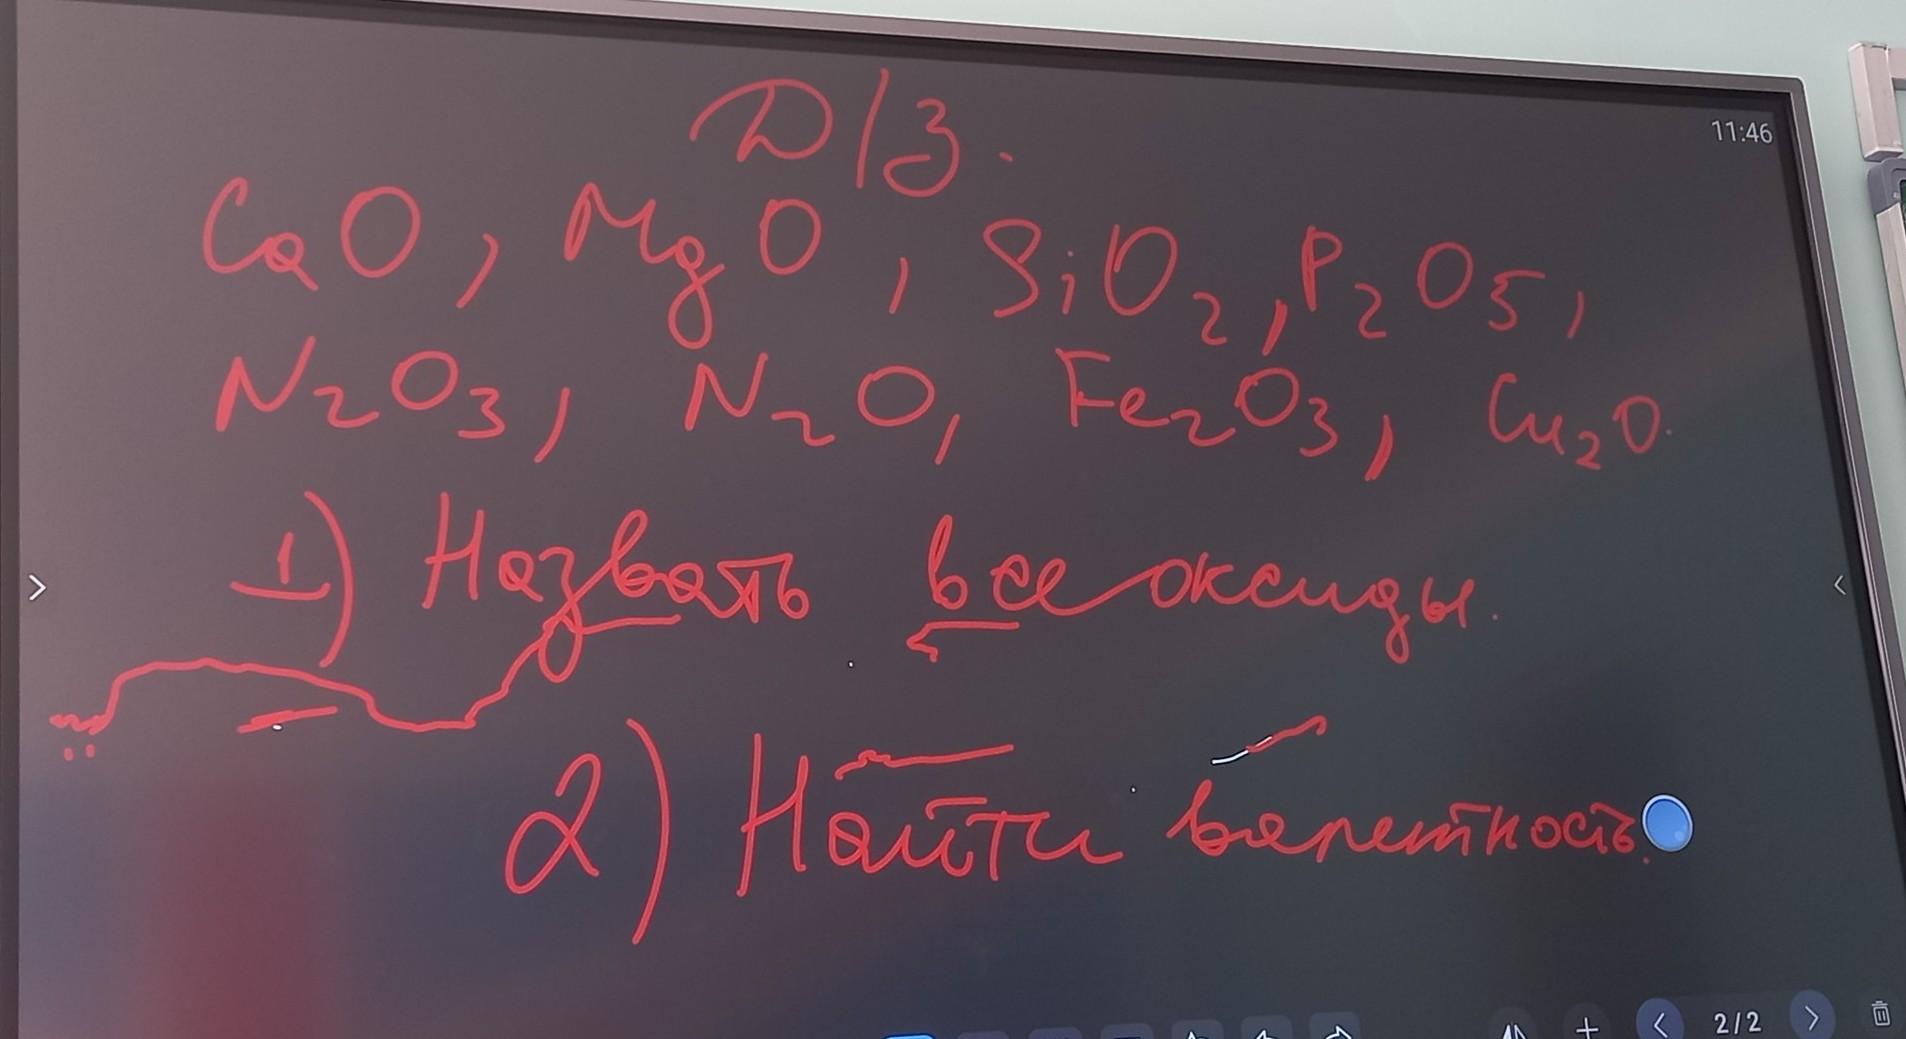 Д/З.
11:46
CaO, MgO, SiO₂, P₂O₅,
N₂O₃, N₂O, Fe₂O₃, Cu₂O.
1) Назвать все оксиды.
2) Найти валентность.
2/2